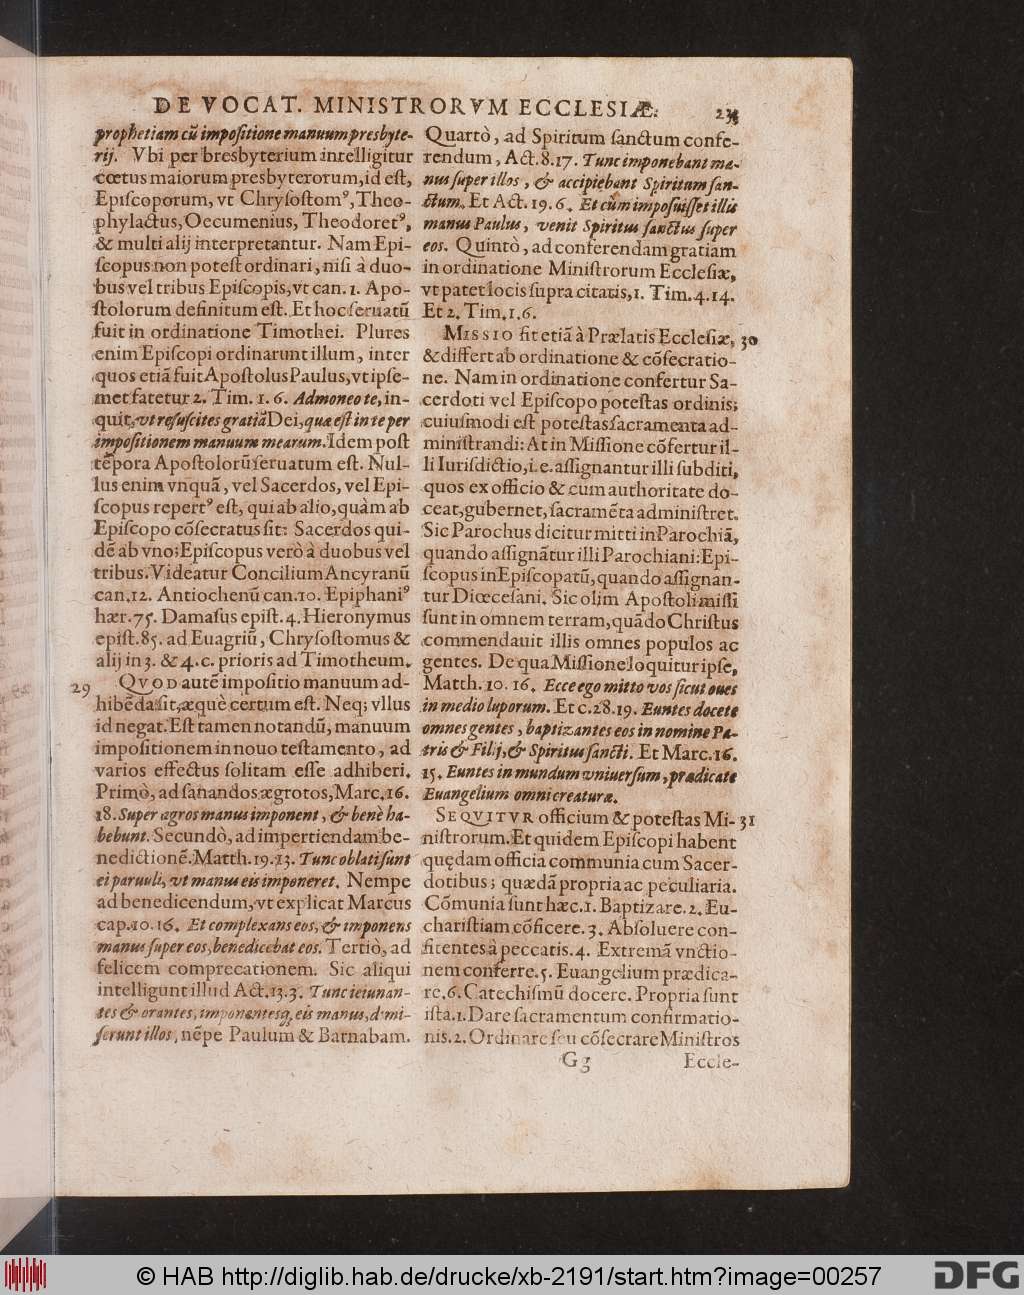 DE VOCAT. MINISTRORVM ECCLESIÆ.
prophetiam cũ impoſitione manuum presbyte-
rij. Vbi per bresbyterium intelligitur
cœtus maiorum presbyterorum, id eſt,
Epiſcoporum, vt Chryſoſtomꝰ, Theo-
phylactus, Oecumenius, Theodoretꝰ,
& multi alij interpretantur. Nam Epi-
ſcopus non poteſt ordinari, niſi à duo-
bus vel tribus Epiſcopis, vt can. 1. Apo-
ſtolorum definitum eſt. Et hoc ſeruatũ
fuit in ordinatione Timothei. Plures
enim Epiſcopi ordinarunt illum, inter
quos etiã fuit Apoſtolus Paulus, vt ipſe-
met fatetur 2. Tim. 1. 6. Admoneo te, in-
quit, vt reſuſcites gratiã Dei, quæ eſt in te per
impoſitionem manuum mearum. Idem poſt
tẽpora Apoſtolorũ ſeruatum eſt. Nul-
lus enim vnquã, vel Sacerdos, vel Epi-
ſcopus repertꝰ eſt, qui ab alio, quàm ab
Epiſcopo cõſecratus ſit: Sacerdos qui-
dẽ ab vno; Epiſcopus verò à duobus vel
tribus. Videatur Concilium Ancyranũ
can. 12. Antiochenũ can. 10. Epiphaniꝰ
hær. 75. Damaſus epiſt. 4. Hieronymus
epiſt. 85. ad Euagriũ, Chryſoſtomus &
alij in 3. & 4. c. prioris ad Timotheum.
29 QVOD autẽ impoſitio manuum ad-
hibẽda ſit, æquè certum eſt. Neq; vllus
id negat. Eſt tamen notandũ, manuum
impoſitionem in nouo teſtamento, ad
varios effectus ſolitam eſſe adhiberi.
Primò, ad ſanandos ægrotos, Marc. 16.
18. Super ægros manus imponent, & benè ha-
bebunt. Secundò, ad impertiendam be-
nedictionẽ. Matth. 19. 13. Tunc oblati ſunt
ei paruuli, vt manus eis imponeret. Nempe
ad benedicendum, vt explicat Marcus
cap. 10. 16. Et complexans eos, & imponens
manus ſuper eos, benedicebat eos. Tertiò, ad
felicem comprecationem. Sic aliqui
intelligunt illud Act. 13. 3. Tunc ieiunan-
tes & orantes, imponentesq; eis manus, dimi-
ſerunt illos, nẽpe Paulum & Barnabam.
Quartò, ad Spiritum ſanctum confe-
rendum, Act. 8. 17. Tunc imponebant ma-
nus ſuper illos, & accipiebant Spiritum ſan-
ctum. Et Act. 19. 6. Et cùm impoſuiſſet illis
manus Paulus, venit Spiritus ſanctus ſuper
eos. Quintò, ad conferendam gratiam
in ordinatione Miniſtrorum Eccleſiæ,
vt patet locis ſupra citatis, 1. Tim. 4. 14.
Et 2. Tim. 1. 6.
MISSIO fit etiã à Prælatis Eccleſiæ, 30
& differt ab ordinatione & cõſecratio-
ne. Nam in ordinatione confertur Sa-
cerdoti vel Epiſcopo poteſtas ordinis;
cuiuſmodi eſt poteſtas ſacramenta ad-
miniſtrandi: At in Miſſione cõfertur il-
li Iurisdictio, i. e. aſſignantur illi ſubditi,
quos ex officio & cum authoritate do-
ceat, gubernet, ſacramẽta adminiſtret.
Sic Parochus dicitur mitti in Parochiã,
quando aſſignãtur illi Parochiani: Epi-
ſcopus in Epiſcopatũ, quando aſſignan-
tur Diœceſani. Sic olim Apoſtoli miſſi
ſunt in omnem terram, quãdo Chriſtus
commendauit illis omnes populos ac
gentes. De qua Miſſione loquitur ipſe,
Matth. 10. 16. Ecce ego mitto vos ſicut oues
in medio luporum. Et c. 28. 19. Euntes docete
omnes gentes, baptizantes eos in nomine Pa-
tris & Filij, & Spiritus ſancti. Et Marc. 16.
15. Euntes in mundum vniuerſum, prædicate
Euangelium omni creaturæ.
SEQVITVR officium & poteſtas Mi- 31
niſtrorum. Et quidem Epiſcopi habent
quędam officia communia cum Sacer-
dotibus; quædã propria ac peculiaria.
Cõmunia ſunt hæc. 1. Baptizare. 2. Eu-
chariſtiam cõficere. 3. Abſoluere con-
fitentes à peccatis. 4. Extremã vnctio-
nem conferre. 5. Euangelium prædica-
re. 6. Catechiſmũ docere. Propria ſunt
iſta. 1. Dare ſacramentum confirmatio-
nis. 2. Ordinare ſeu cõſecrare Miniſtros
Gg Eccle-
© HAB http://diglib.hab.de/drucke/xb-2191/start.htm?image=00257
DFG